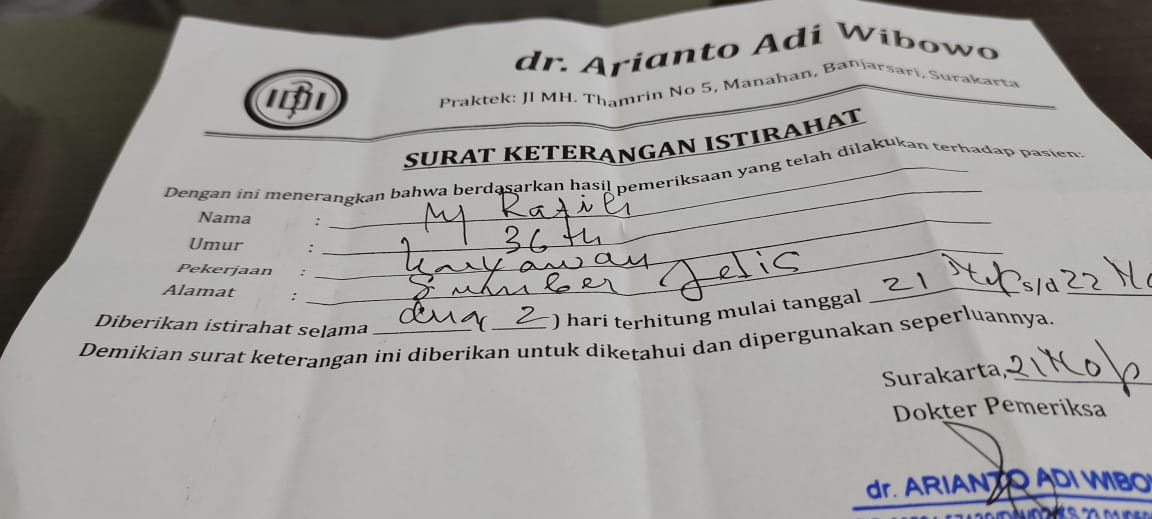 IDI
dr. Arianto Adi Wibowo
Praktek: Jl MH. Thamrin No 5, Manahan, Banjarsari, Surakarta
SURAT KETERANGAN ISTIRAHAT
Dengan ini menerangkan bahwa berdasarkan hasil pemeriksaan yang telah dilakukan terhadap pasien:
Nama :
Umur : 36 th
Pekerjaan : Karyawan
Alamat : Sumber
Diberikan istirahat selama dua ( 2 ) hari terhitung mulai tanggal 21 s/d 22
Demikian surat keterangan ini diberikan untuk diketahui dan dipergunakan seperluannya.
Surakarta, 21 Nop
Dokter Pemeriksa
dr. ARIANTO ADI WIBO